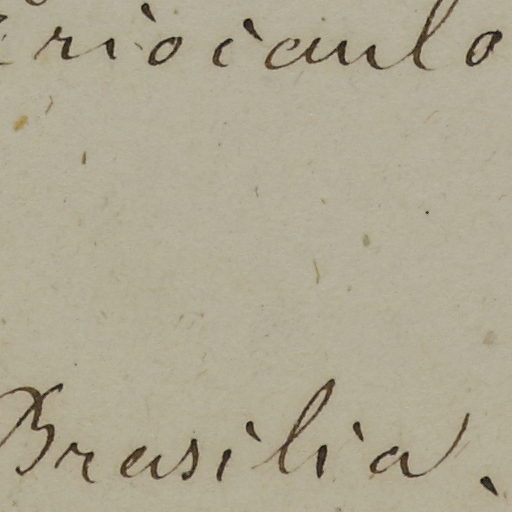 Eriocaulo
Brasilia.